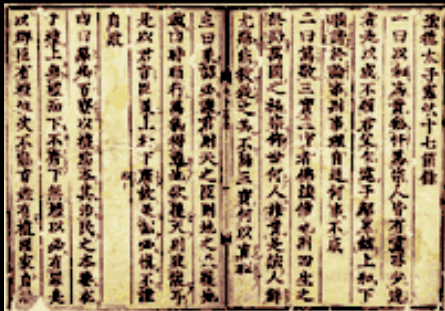 太子憲法十七箇條
一曰以和爲貴無忤爲宗人皆有黨亦少達
者是以或不順君父乍違于隣里然上和下
睦諧於論事則事理自通何事不成
二曰篤敬三寶三寶者佛法僧也則四生之
終歸萬國之極宗何世何人非貴是法人鮮
尤惡能敎從之其不歸三寶何以直枉
三曰承詔必謹君則天之臣則地之天覆地
載四時順行萬氣得通地欲覆天則致壞耳
是以君言臣承上行下靡故承詔必愼不謹
自敗
四曰羣卿百寮以禮爲本其治民之本要在
乎禮上不禮而下不齊下無禮以必有罪是
以群臣有禮位次不亂百姓有禮國家自治